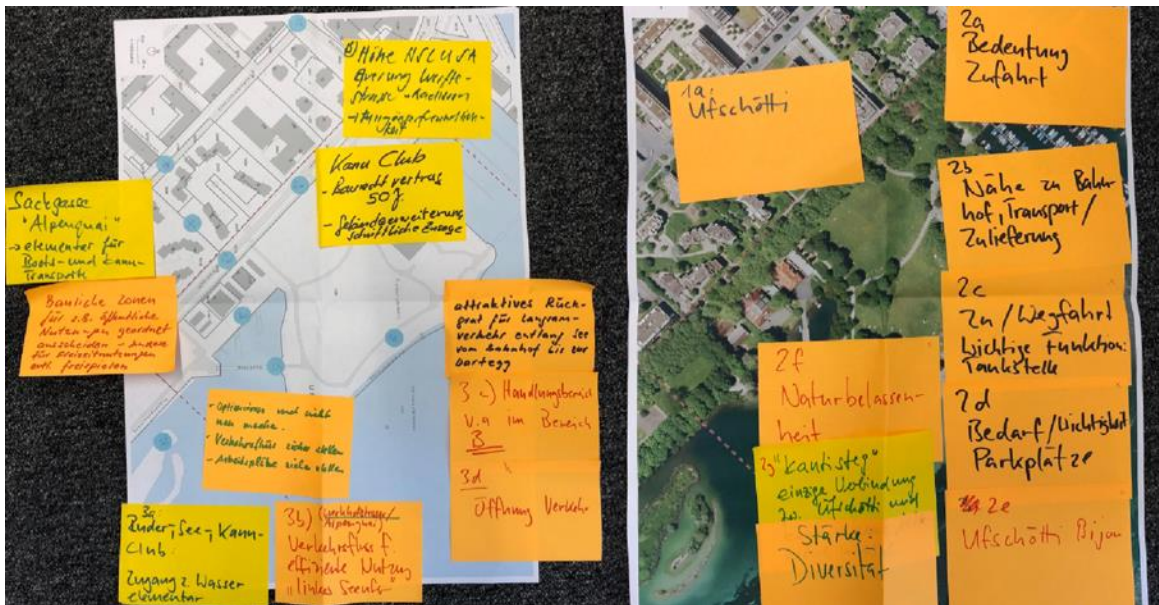 Höhe HSLUSA
Querung Werfte-
strasse
Kanu Club
- Baurechtvertrag
50 J.
- Gebäudeerweiterung
schriftliche Zusage
Sackgasse
"Alpenquai"
→ elementer für
Boots- und Kanu-
Transporte
Bauliche Zonen
für z.B. öffentliche
Nutzungen geordnet
ausscheiden - andere
für Freizeitnutzungen
evtl. freispielen
attraktives Rück-
grat für Langsam-
verkehr entlang See
vom Bahnhof bis zur
- Optimieren und nicht
neu machen.
- Verkehrsfluss sicher stellen
- Arbeitsplätze sicher stellen
3c) Handlungsbereich
v.a im Bereich
B
3d
Öffnung Verkehr
3a:
Ruder-, See-, Kanu-
Club:
Zugang z. Wasser
elementar
3b) (Werkhofstrasse/
Alpenquai)
Verkehrsfluss f.
effiziente Nutzung
"linkes Seeufer"
1a:
Ufschötti
2a
Bedeutung
Zufahrt
2b
Nähe zu Bahn
hof, Transport/
Zulieferung
2c
Zu/Wegfahrt
wichtige Funktion:
Tankstelle
2d
Bedarf/Wichtigkeit
Parkplätze
2e
Ufschötti Bijou
2f
Naturbelassen-
heit
2g "Kantisteg"
einzige Verbindung
zw. Ufschötti und
Stärke:
Diversität